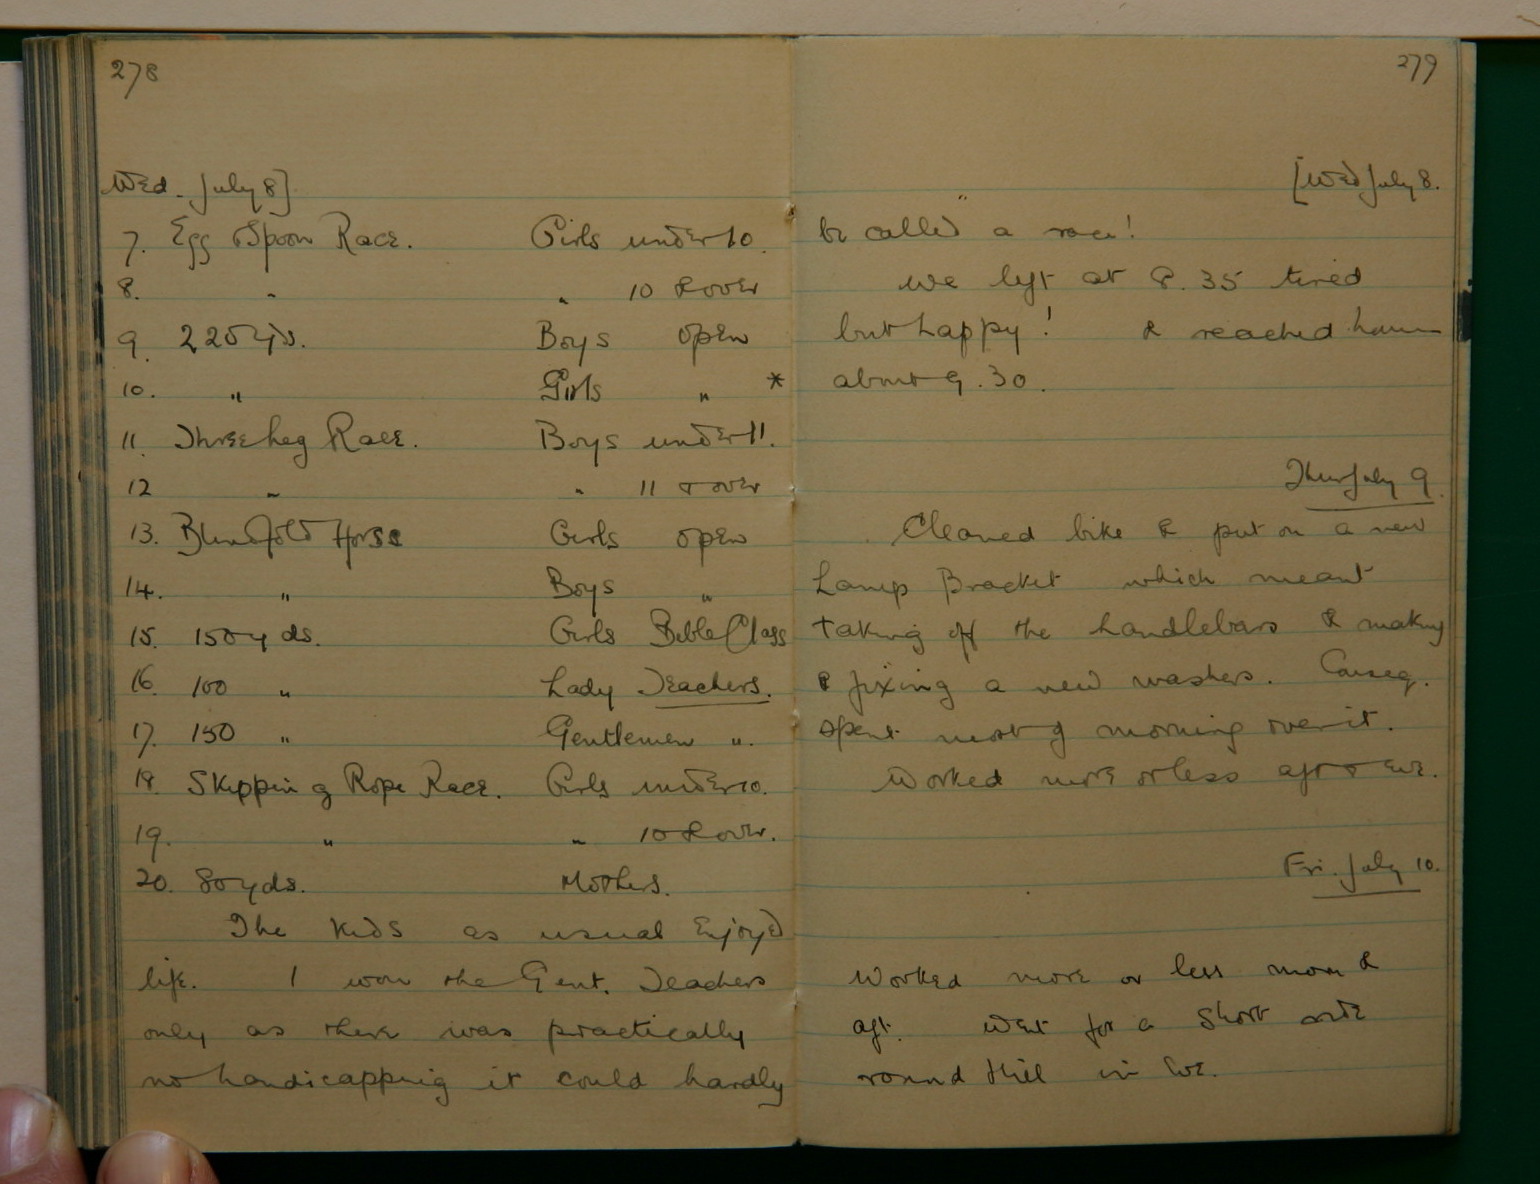 278
Wed. July 8]
7. Egg & Spoon Race. Girls under 10.
8. " " 10 & over
9. 220 yds. Boys open
10. " Girls " *
11. Three Leg Race. Boys under 11.
12 " " 11 & over
13. Blindfold Horse Girls open
14. " Boys "
15. 150 yds. Girls Bible Class
16. 100 " Lady Teachers.
17. 150 " Gentlemen ".
18. Skipping Rope Race. Girls under 10.
19. " " 10 & over.
20. 80 yds. Mothers.
The kids as usual enjoyed
life. I won the Gent. Teachers
only as there was practically
no handicapping it could hardly
279
[Wed July 8.
be called a race!
We left at 8.35 tired
but happy! & reached home
about 9.30.
Thur July 9.
Cleaned bike & put on a new
Lamp Bracket which meant
taking off the handlebars & making
& fixing a new washers. Conseq.
spent most of morning over it.
Worked more or less aft & eve.
Fri. July 10.
Worked more or less morn &
aft. Went for a short ride
round Hill in eve.